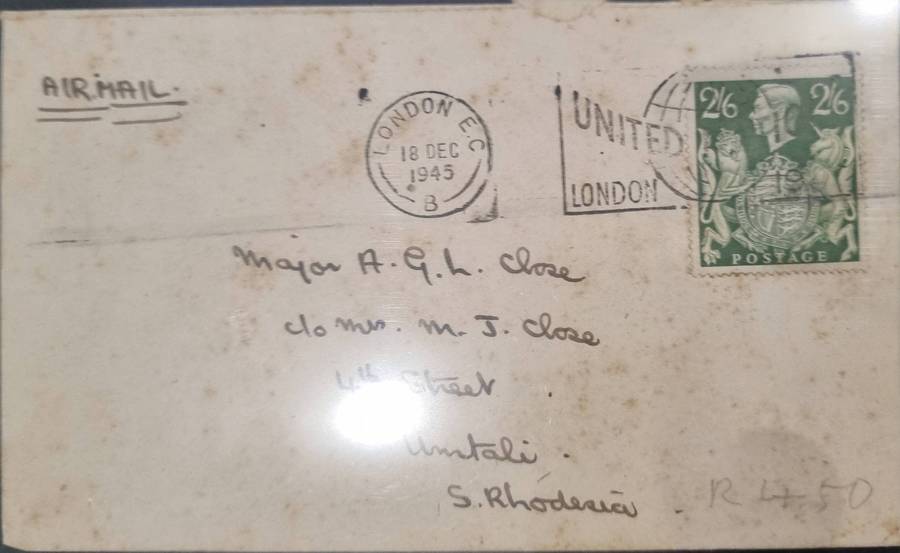 AIR MAIL.
LONDON E.C
18 DEC
1945
B
UNITED
LONDON
19
2/6 2/6
POSTAGE
Major A. G. L. Close
c/o Mrs. M. J. Close
4th Street
Umtali.
S. Rhodesia.
R 4.50